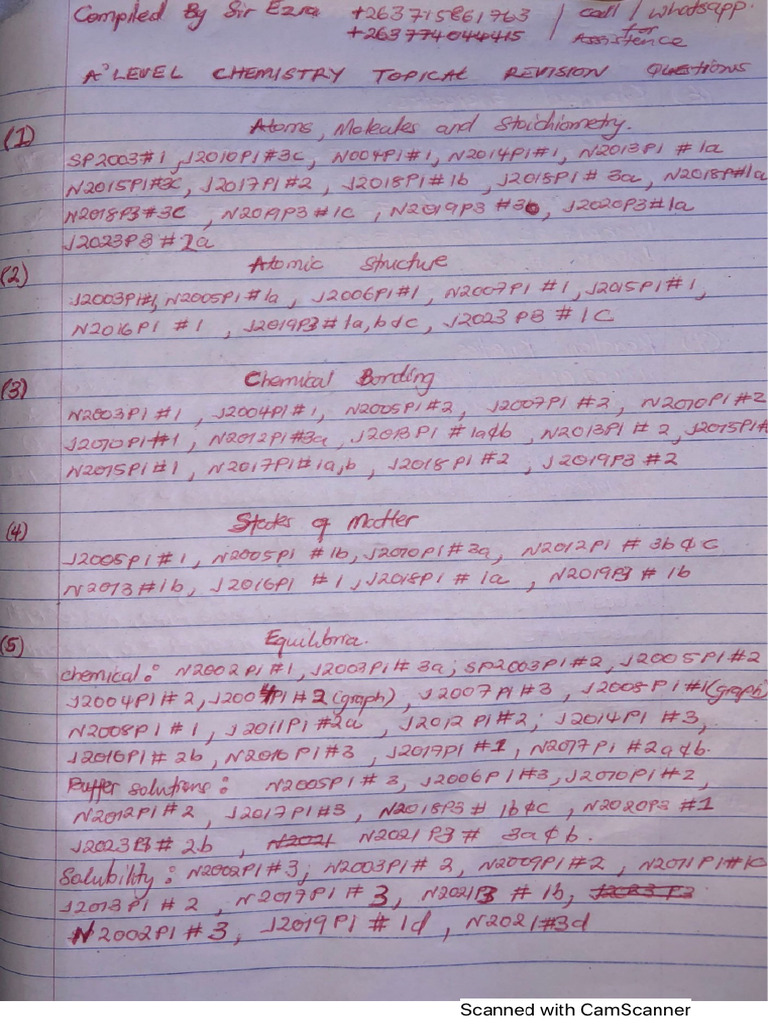 Compiled By Sir Ezra +263715861763 / call / whatsapp.
+263774044415 / for Assistence
A'LEVEL CHEMISTRY TOPICAL REVISION QUESTIONS
(1) Atoms, Molecules and Stoichiometry.
SP2003#1, J2010P1#3c, N004P1#1, N2014P1#1, N2013P1 #1a
N2015P1#3c, J2017P1#2, J2018P1#1b, J2018P1#3a, N2018P#1a
N2018P3#3c, N2019P3#1c, N2019P3#3b, J2020P3#1a
J2023P3#2a
(2) Atomic Structure
J2003P1#1, N2005P1#1a, J2006P1#1, N2007P1 #1, J2015P1#1,
N2016P1 #1, J2019P3#1a,b&c, J2023P3 #1C
(3) Chemical Bonding
N2003P1#1, J2004P1#1, N2005P1#2, J2007P1#2, N2010P1#2
J2010P1#1, N2012P1#3a, J2013P1 #1a&b, N2013P1#2, J2015P1#
N2015P1#1, N2017P1#1a,b, J2018P1#2, J2019P3#2
(4) States of Matter
J2005P1#1, N2005P1#1b, J2010P1#3a, N2012P1 # 3b&c
N2013#1b, J2016P1 #1, J2018P1 #1a, N2019P3#1b
(5) Equilibria.
Chemical: N2002P1#1, J2003P1#3a; SP2003P1#2, J2005P1#2
J2004P1#2, J2007P1#3, J2008P1#1(graph)
N2008P1#1, J2011P1#2a, J2012P1#2; J2014P1#3,
J2016P1#2b, N2016P1#3, J2017P1#1, N2017P1#2a&b.
Buffer solutions: N2005P1#3, J2006P1#3, J2010P1#2,
N2012P1#2, J2017P1#3, N2018P3#1b&c, N2020P3#1
J2023P3#2b, N2021 N2021P3# 3a&b.
Solubility: N2002P1#3; N2003P1#2, N2009P1#2, N2011P1#1c
J2013P1#2, N2017P1#3, N2021P3#1b, J2023P3
N2002P1#3, J2019P1#1d, N2021#3d
Scanned with CamScanner